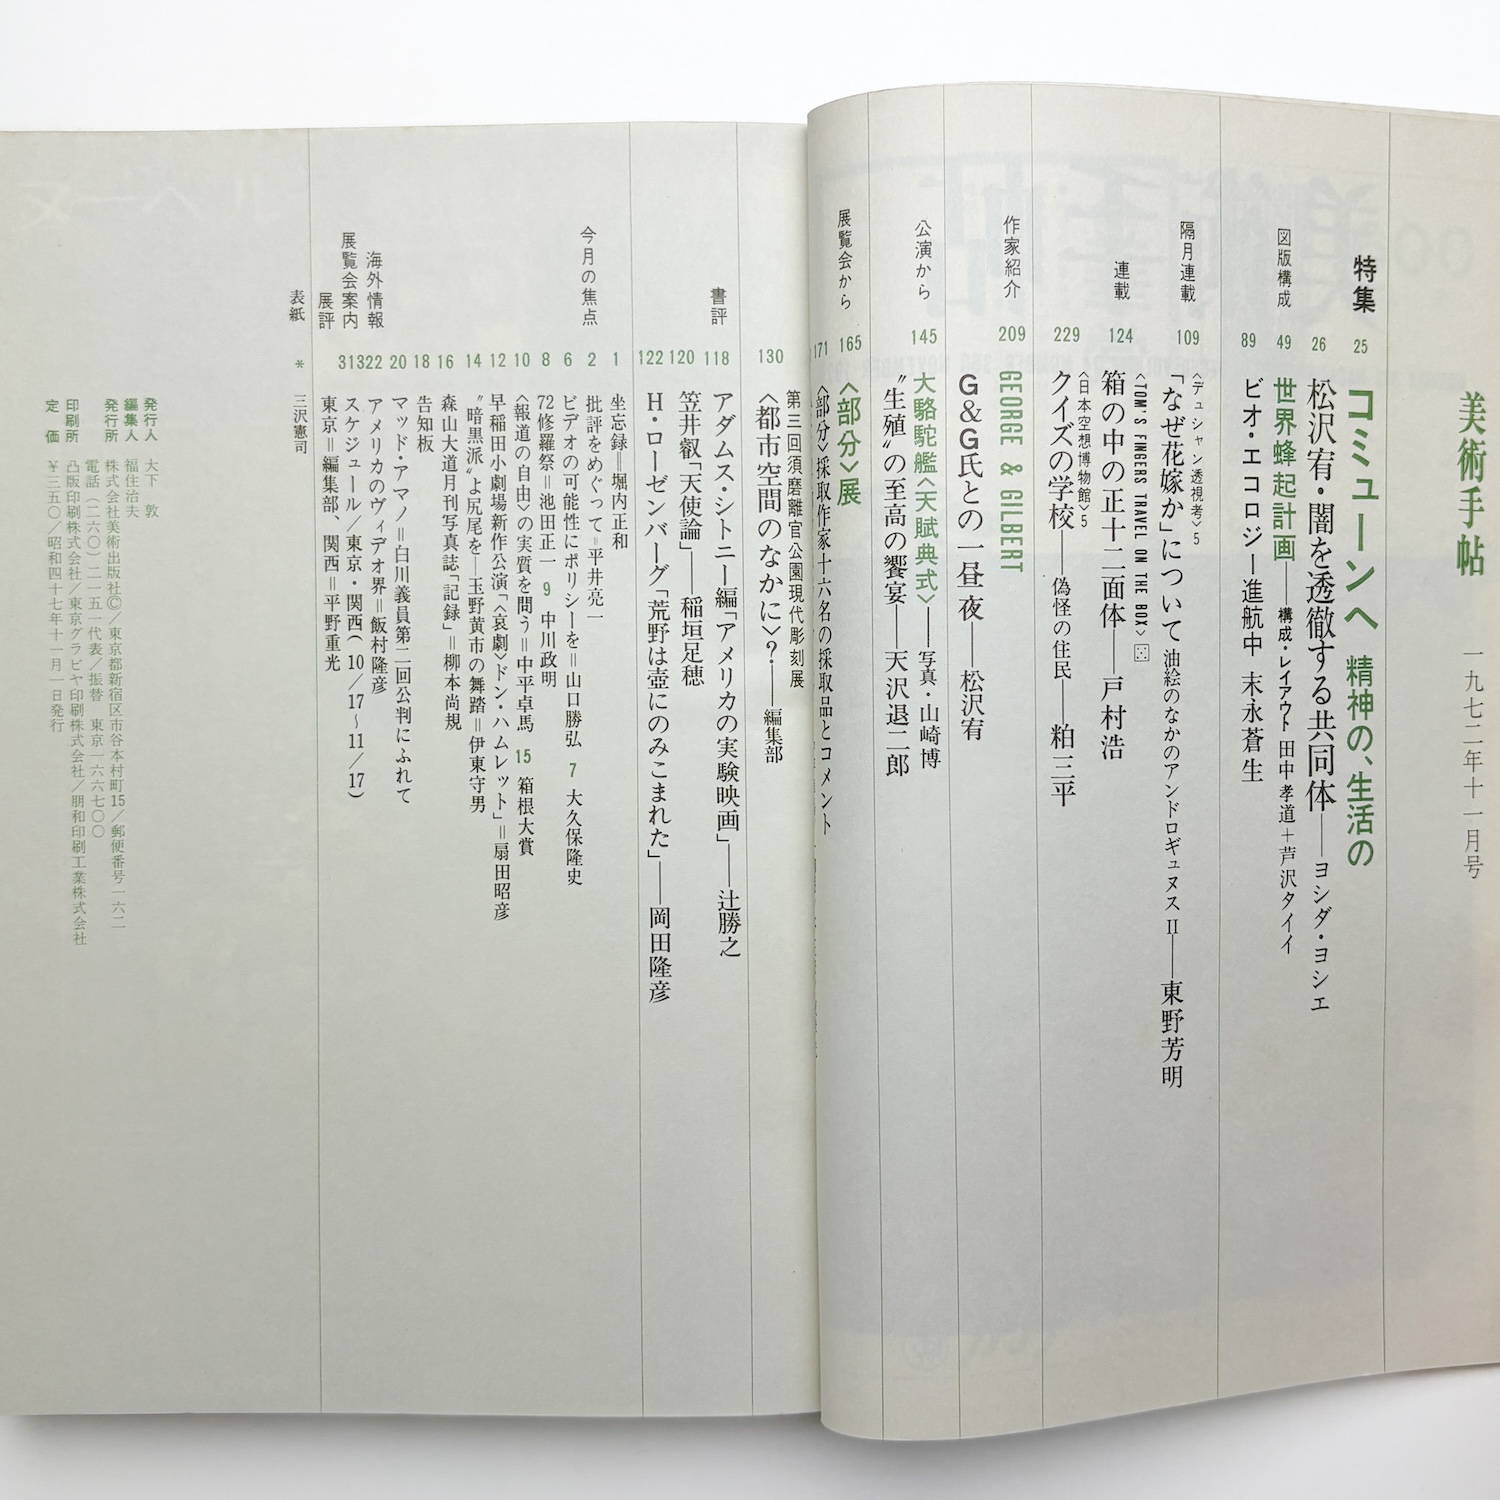 美術手帖
一九七二年十一月号
特集
25
コミューンへ 精神の、生活の
26
松沢宥・闇を透徹する共同体――ヨシダ・ヨシエ
図版構成
49
世界蜂起計画――構成・レイアウト 田中孝道＋芦沢タイイ
89
ビオ・エコロジー進航中 末永蒼生
隔月連載
109
〈デュシャン透視考〉5
「なぜ花嫁か」について 油絵のなかのアンドロギュヌスⅡ――東野芳明
連載
124
〈TOM'S FINGERS TRAVEL ON THE BOX〉
箱の中の正十二面体――戸村浩
229
〈日本空想博物館〉5
クイズの学校――偽怪の住民――粕三平
作家紹介
209
GEORGE & GILBERT
G&G氏との一昼夜――松沢宥
公演から
145
大駱駝艦〈天賦典式〉――写真・山崎博
〝生殖〟の至高の饗宴――天沢退二郎
展覧会から
165
〈部分〉展
171
〈部分〉採取作家十六名の採取品とコメント
130
第三回須磨離宮公園現代彫刻展
〈都市空間のなかに〉?――編集部
書評
118
アダムス・シトニー編「アメリカの実験映画」――辻勝之
120
笠井叡「天使論」――稲垣足穂
122
H・ローゼンバーグ「荒野は壺にのみこまれた」――岡田隆彦
今月の焦点
1
坐忘録＝堀内正和
2
批評をめぐって＝平井亮一
6
ビデオの可能性にポリシーを＝山口勝弘 7 大久保隆史
8
72修羅祭＝池田正一 9 中川政明
10
〈報道の自由〉の実質を問う＝中平卓馬 15 箱根大賞
12
早稲田小劇場新作公演「〈哀劇〉ドン・ハムレット」＝扇田昭彦
14
〝暗黒派〟よ尻尾を―玉野黄市の舞踏＝伊東守男
16
森山大道月刊写真誌「記録」＝柳本尚規
18
告知板
20
マッド・アマノ＝白川義員第二回公判にふれて
海外情報
22
アメリカのヴィデオ界＝飯村隆彦
展覧会案内
13
スケジュール／東京・関西(10／17～11／17)
展評
3
東京＝編集部、関西＝平野重光
表紙
*
三沢憲司
発行人 大下 敦
編集人 福住治夫
発行所 株式会社美術出版社©／東京都新宿区市谷本村町15／郵便番号一六二
電話(二六〇)二一五一代表／振替 東京一六六七〇〇
印刷所 凸版印刷株式会社／東京グラビヤ印刷株式会社／朋和印刷工業株式会社
定 価 ￥三五〇／昭和四十七年十一月一日発行